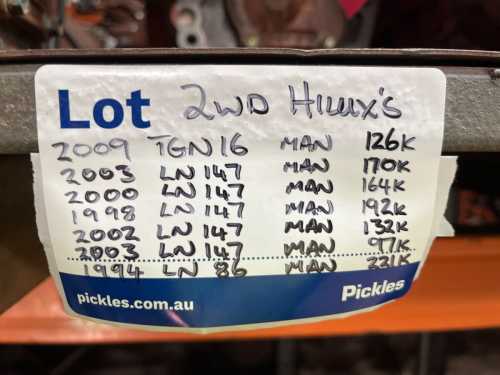 Lot 2WD HILUX'S
2009 TGN16 MAN 126K
2003 LN 147 MAN 170K
2000 LN 147 MAN 164K
1998 LN 147 MAN 192K
2002 LN 147 MAN 132K
2003 LN 147 MAN 97K
1994 LN 86 MAN 221K
pickles.com.au Pickles